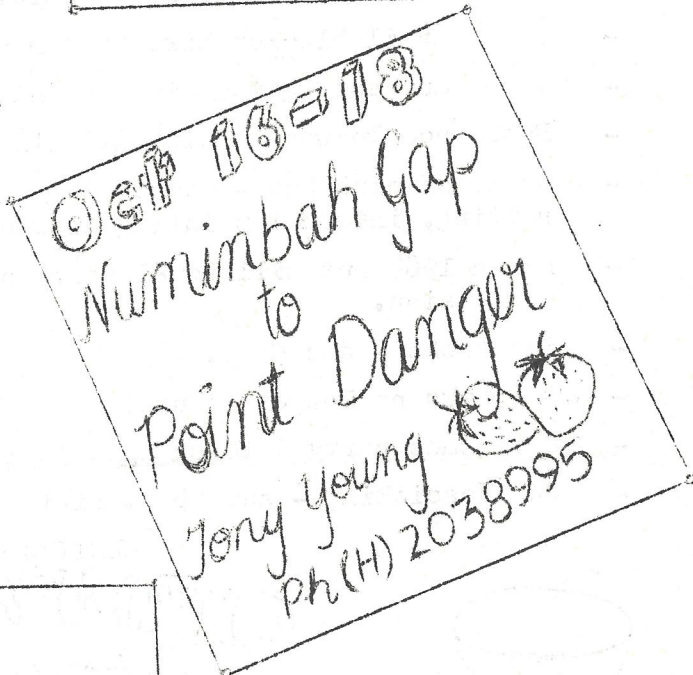 Oct 16-18
Numinbah Gap
to
Point Danger
Tony Young
Ph(H) 2038995